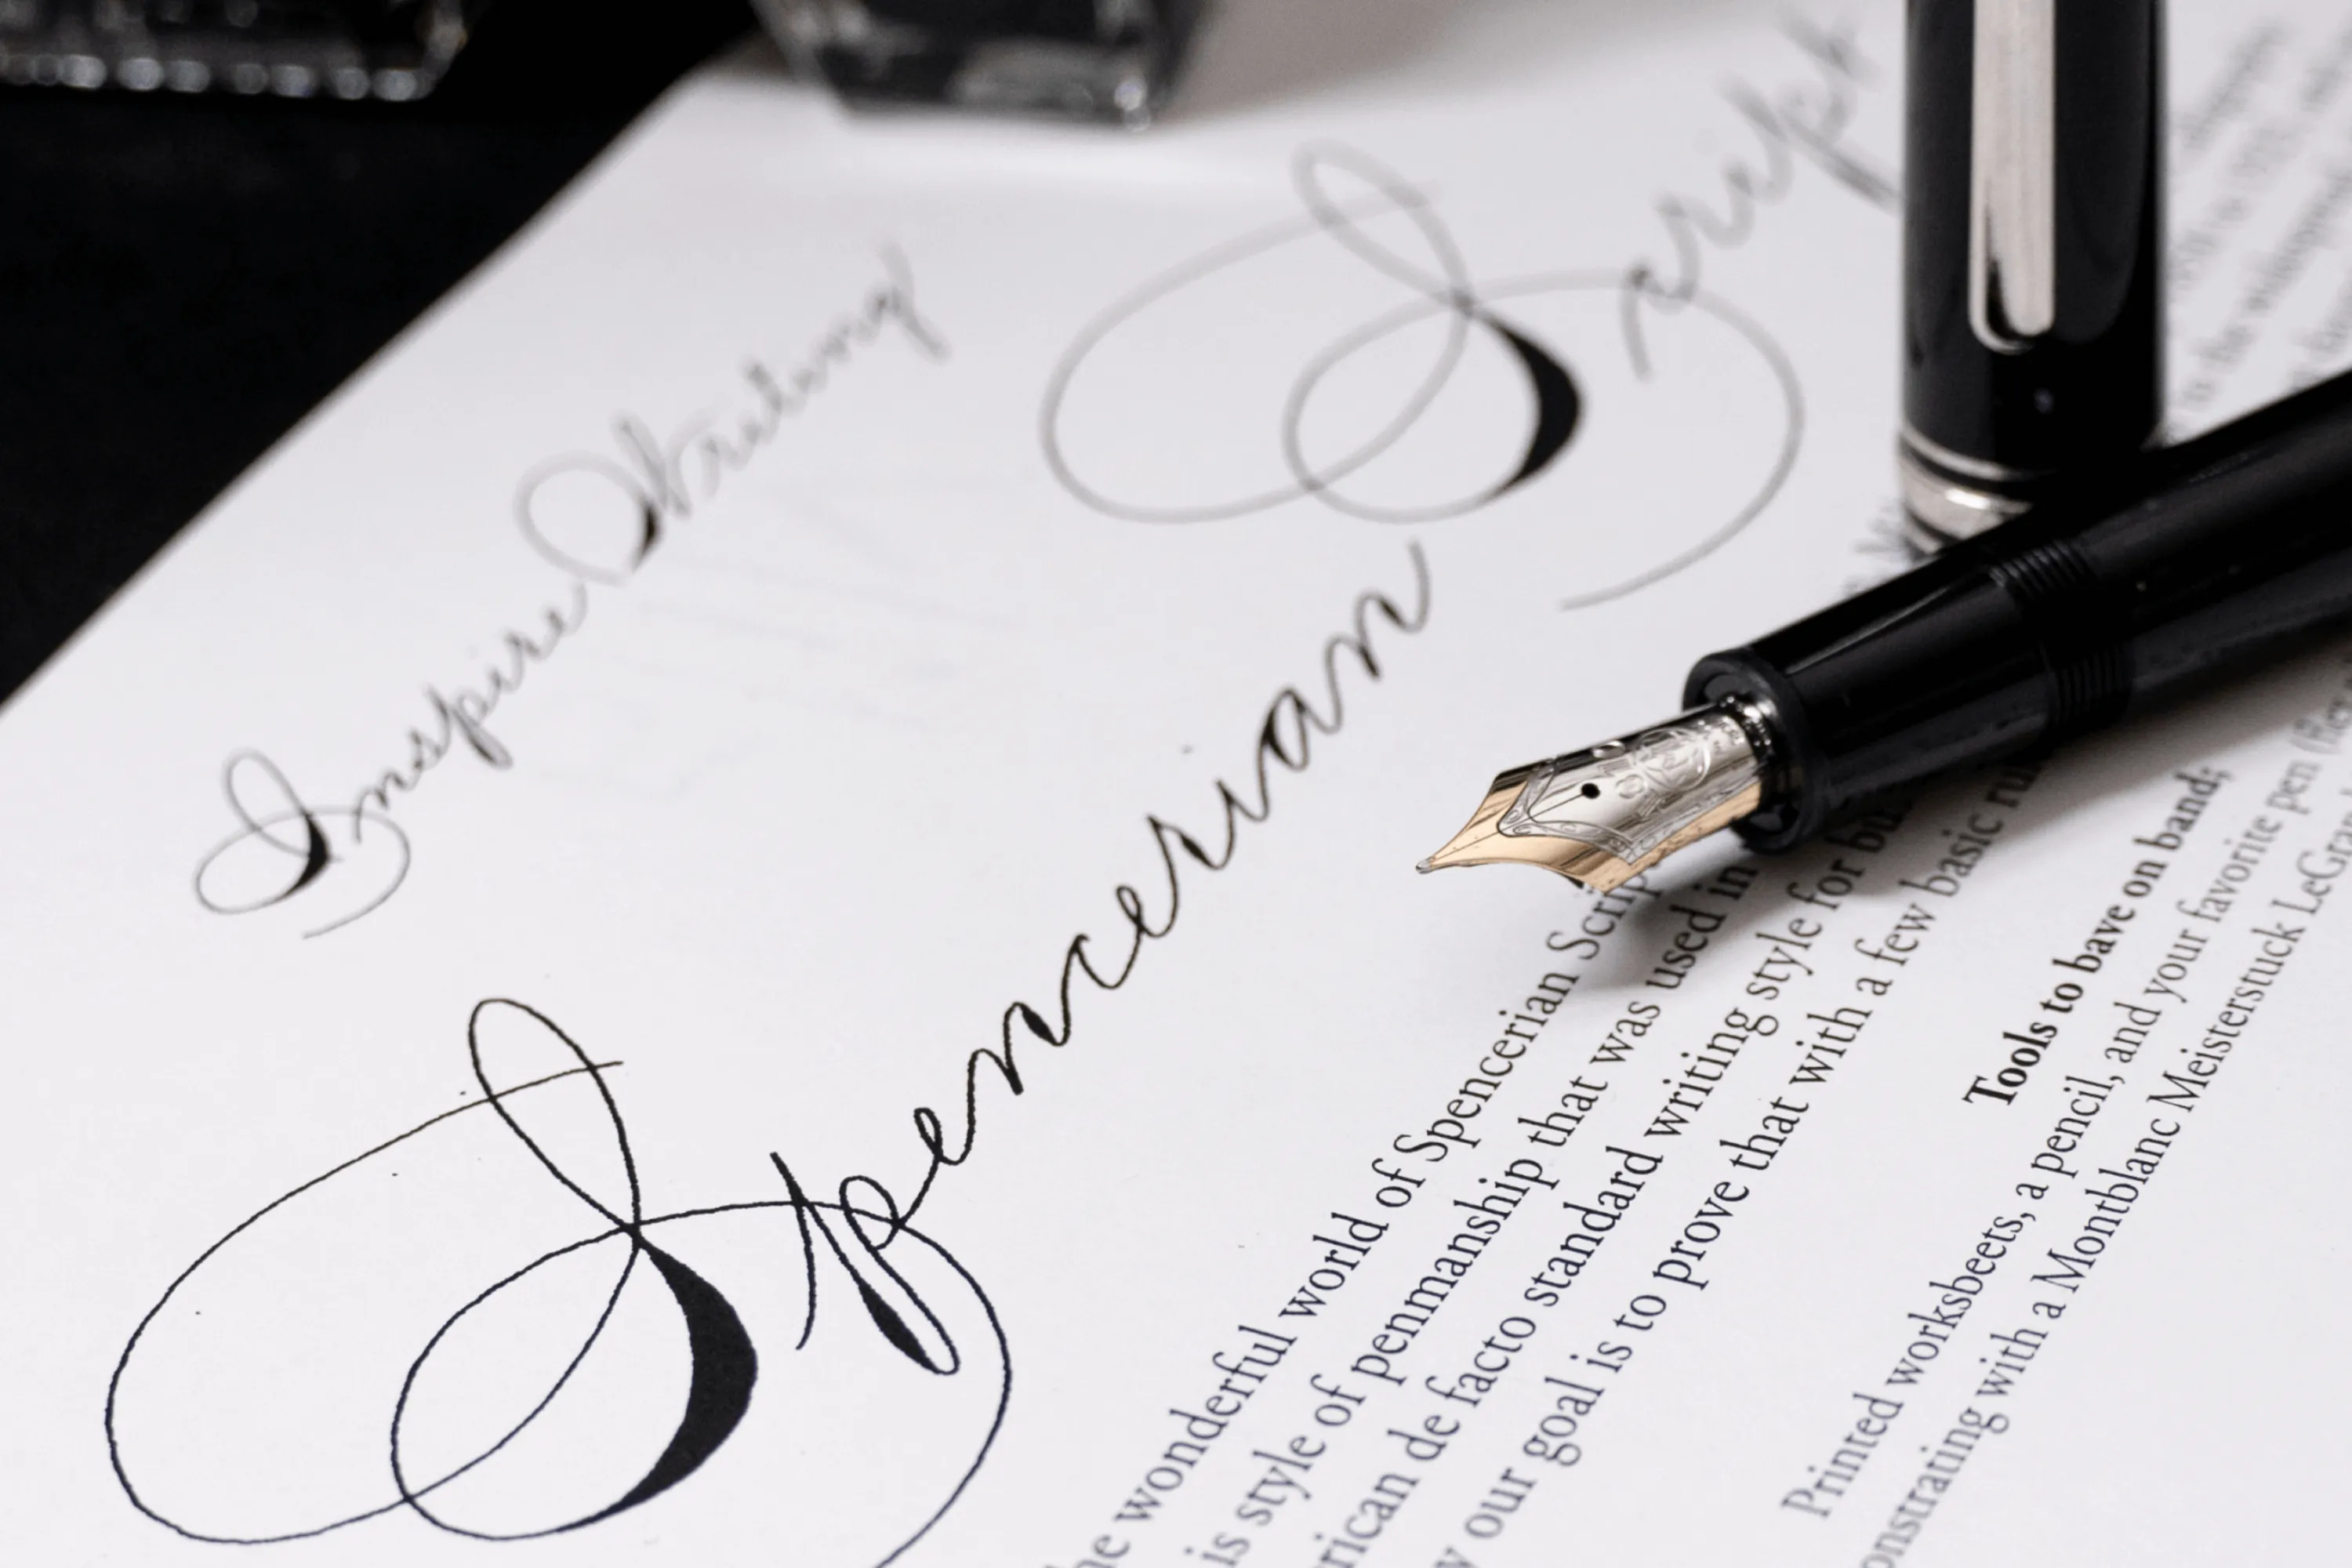 Inspire
Spencerian Script
he wonderful world of Spencerian Scrip
is style of penmanship that was used in
rican de facto standard writing style for bu
y our goal is to prove that with a few basic ru
Tools to have on hand;
Printed worksheets, a pencil, and your favorite pen
onstrating with a Montblanc Meisterstuck LeGra